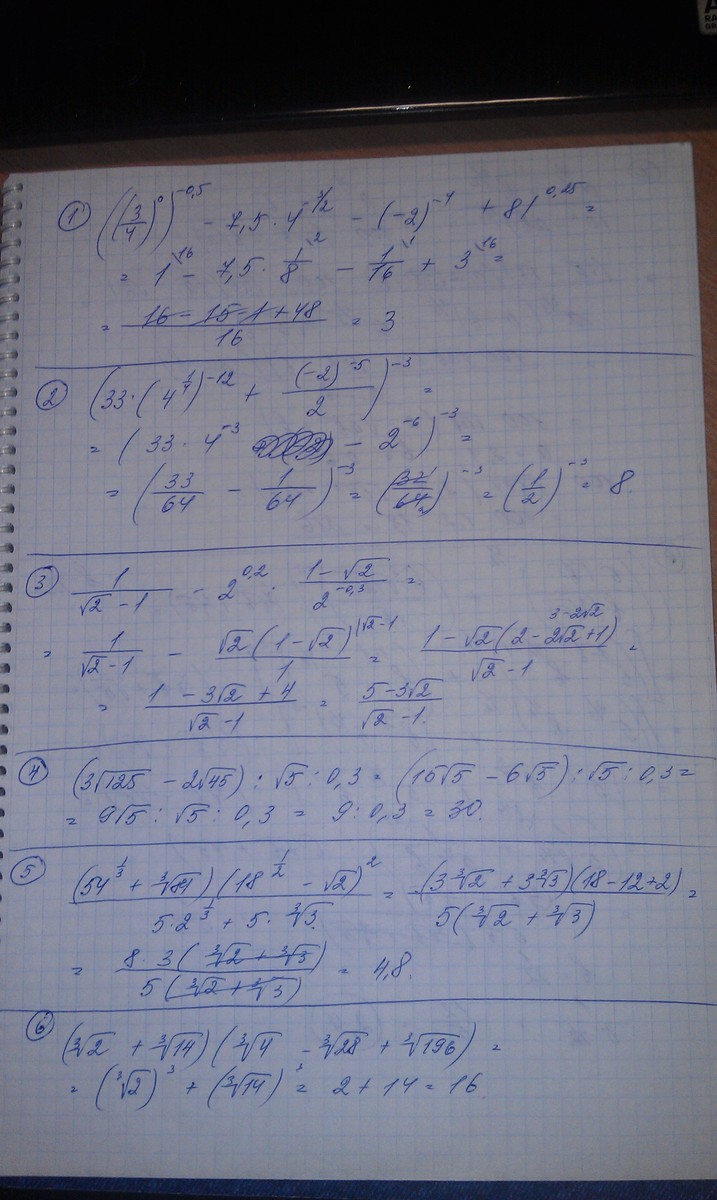 A
RA
GR
① ((3/4)^0)^-0,5 - 7,5 · 4^-3/2 - (-2)^-4 + 81^0,25 =
= 1^\16 - 7,5 · 1/8^\2 - 1/16^\1 + 3^\16 =
= (16 - 15 - 1 + 48)/16 = 3
② (33 · (4^1/4)^-12 + (-2)^-5/2)^-3 =
= (33 · 4^-3 - 2^-6)^-3 =
= (33/64 - 1/64)^-3 = (32/64)^-3 = (1/2)^-3 = 8.
③ 1/(√2 - 1) - 2^0,2 · (1 - √2)/2^-0,3 =
= 1/(√2 - 1) - √2(1 - √2)/1^\√2-1 = (1 - √2(2 - 2√2 + 1))/(√2 - 1) = 3 - 2√2
= (1 - 3√2 + 4)/(√2 - 1) = (5 - 3√2)/(√2 - 1).
④ (3√125 - 2√45) : √5 : 0,3 = (15√5 - 6√5) : √5 : 0,3 =
= 9√5 : √5 : 0,3 = 9 : 0,3 = 30.
⑤ (54^1/3 + ∛81)(18^1/2 - √2)^2/(5 · 2^1/3 + 5 · ∛3) = (3∛2 + 3∛3)(18 - 12 + 2)/(5(∛2 + ∛3)) =
= 8 · 3(∛2 + ∛3)/(5(∛2 + ∛3)) = 4,8.
⑥ (∛2 + ∛14)(∛4 - ∛28 + ∛196) =
= (∛2)^3 + (∛14)^3 = 2 + 14 = 16